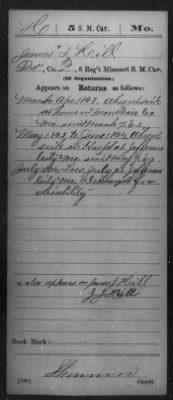 H 5 S. M. Cav. Mo.
James J. Heill
Pvt., Co. B, 5 Reg't Missouri S. M. Cav.
(1st Organization.)
Appears on Returns as follows:
March & Apr 1862, Absent sick
at home in Moniteau Co
Mo. since March 7, 62
May 1862 to June 1862 Absent
sick in Hospital Jefferson
City Mo. since May 7, 62
July 62 Loss July 22, Jefferson
City Mo. Discharged for
disability
also appears as James Heill
J. J. Hill
Book Mark:
Copyist.